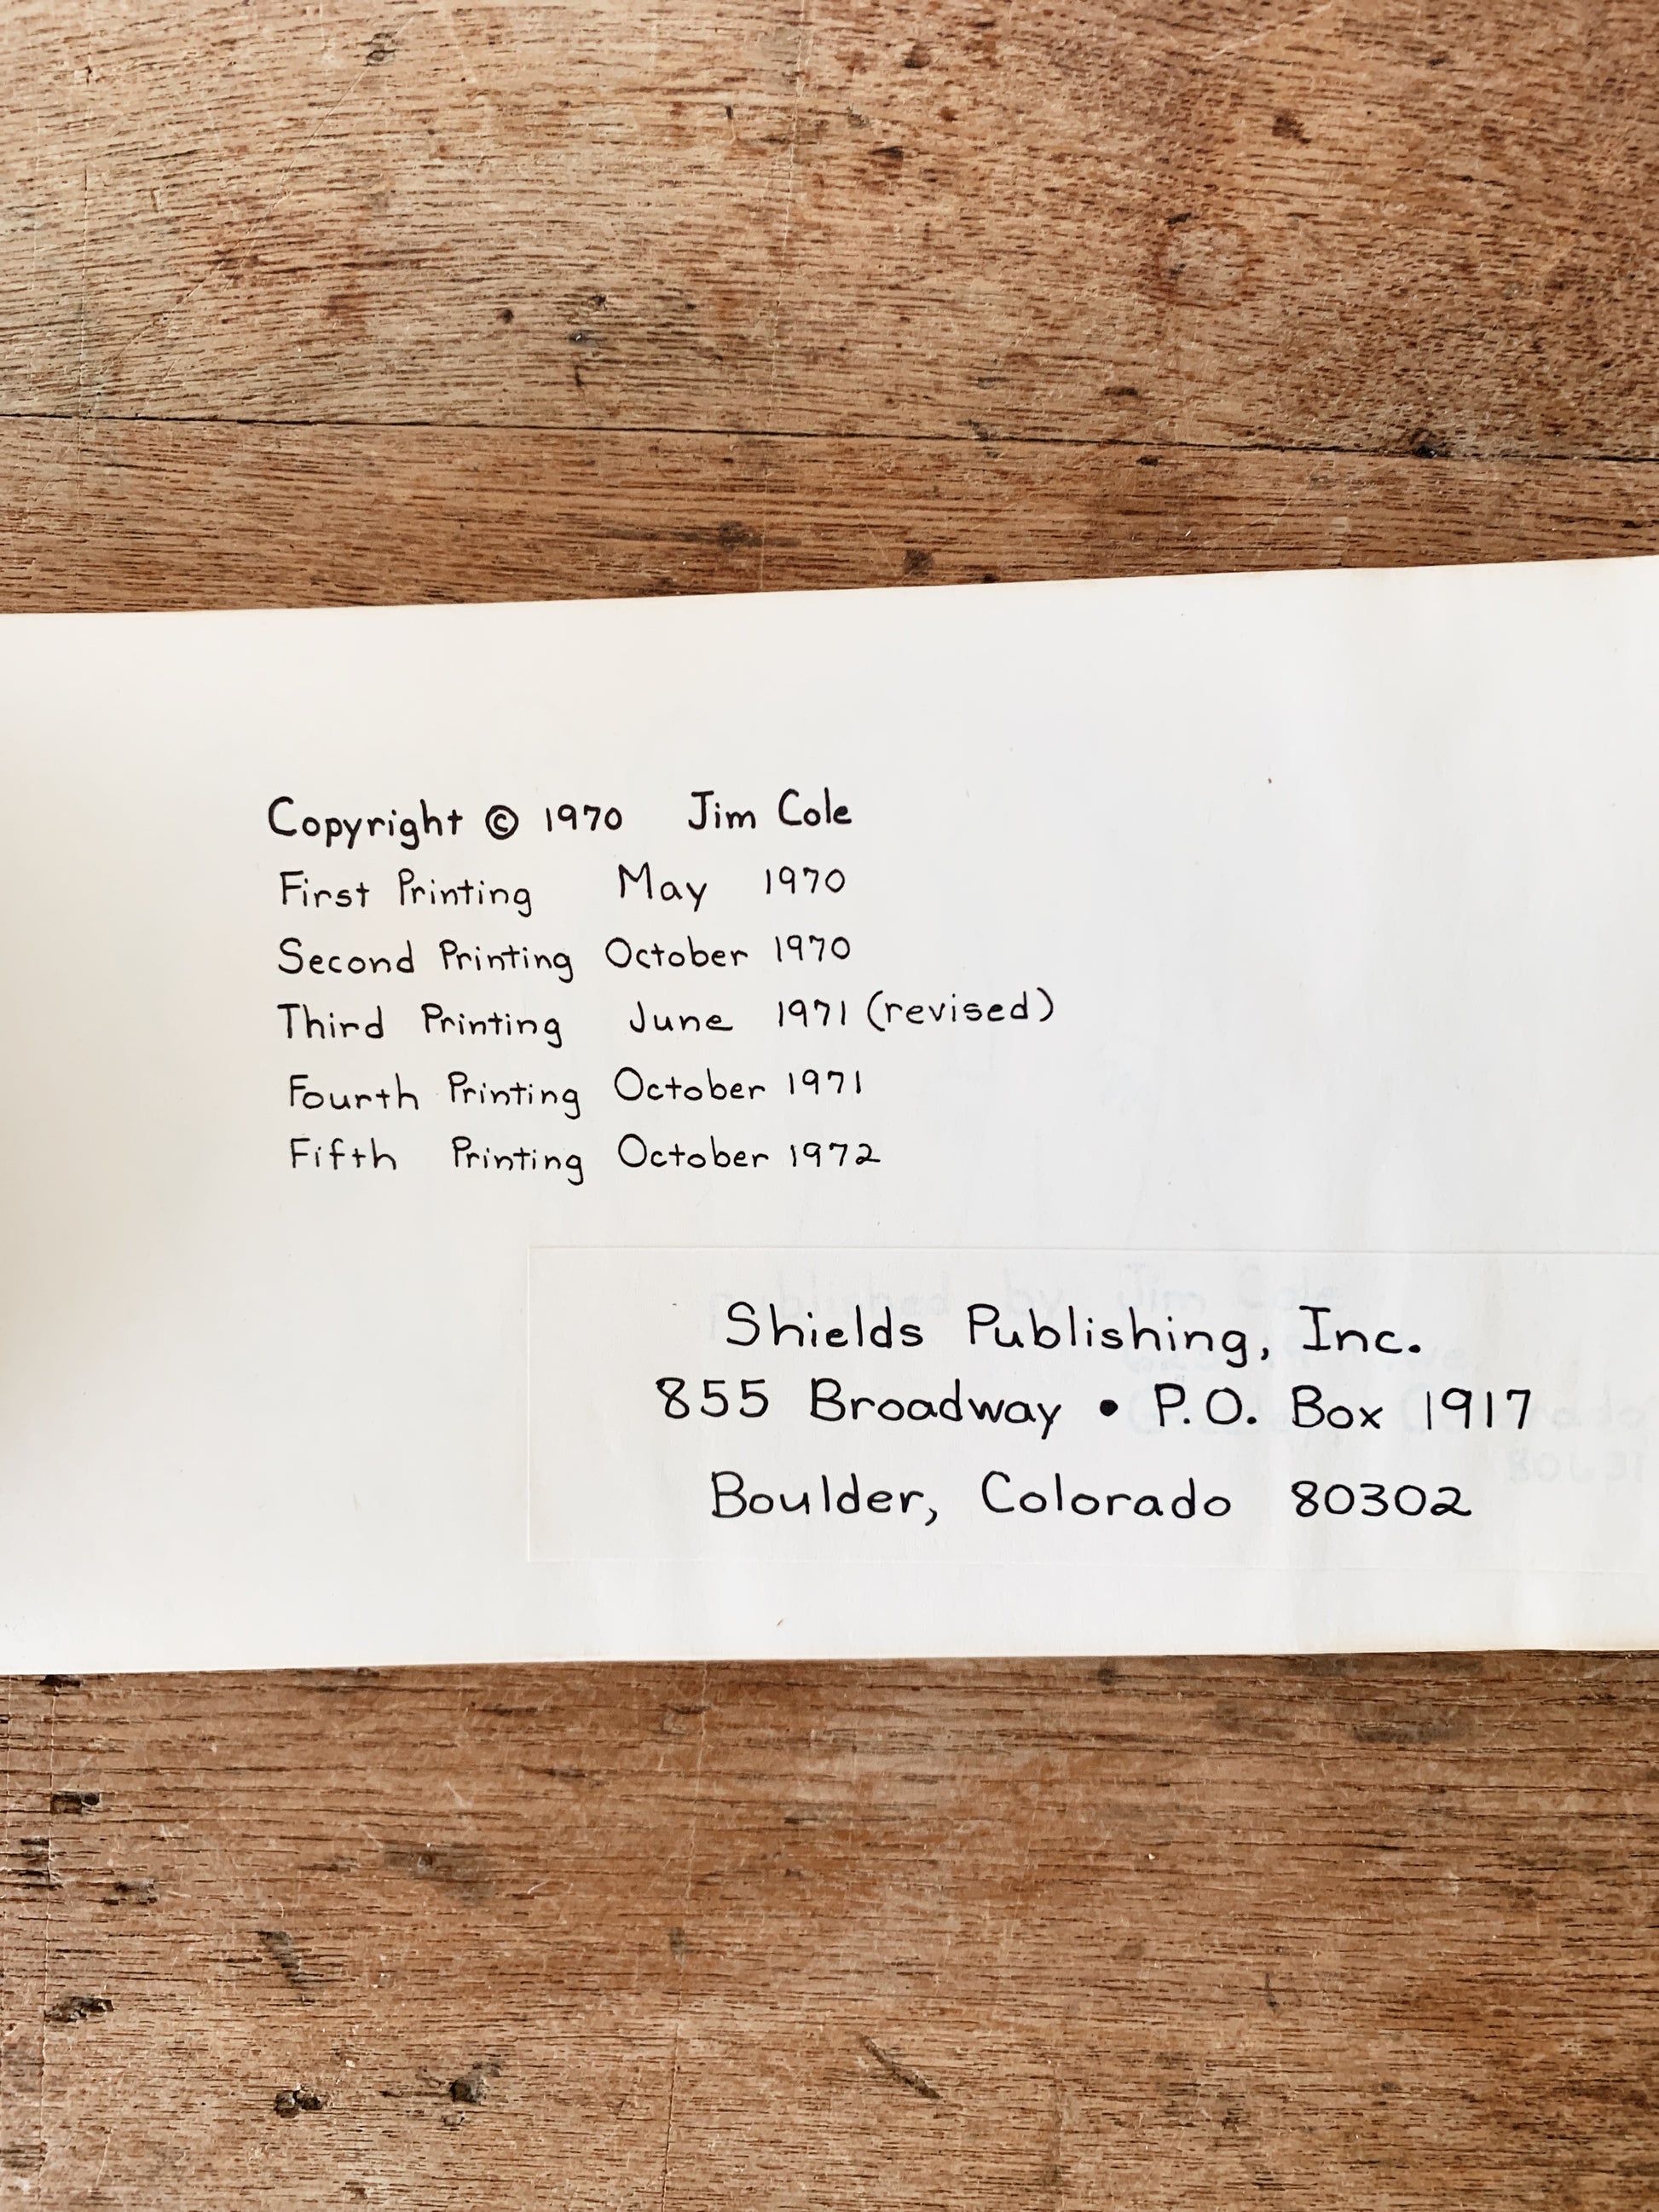 Copyright © 1970 Jim Cole
First Printing May 1970
Second Printing October 1970
Third Printing June 1971 (revised)
Fourth Printing October 1971
Fifth Printing October 1972
published by Jim Cole
Shields Publishing, Inc.
855 Broadway • P.O. Box 1917
Boulder, Colorado 80302